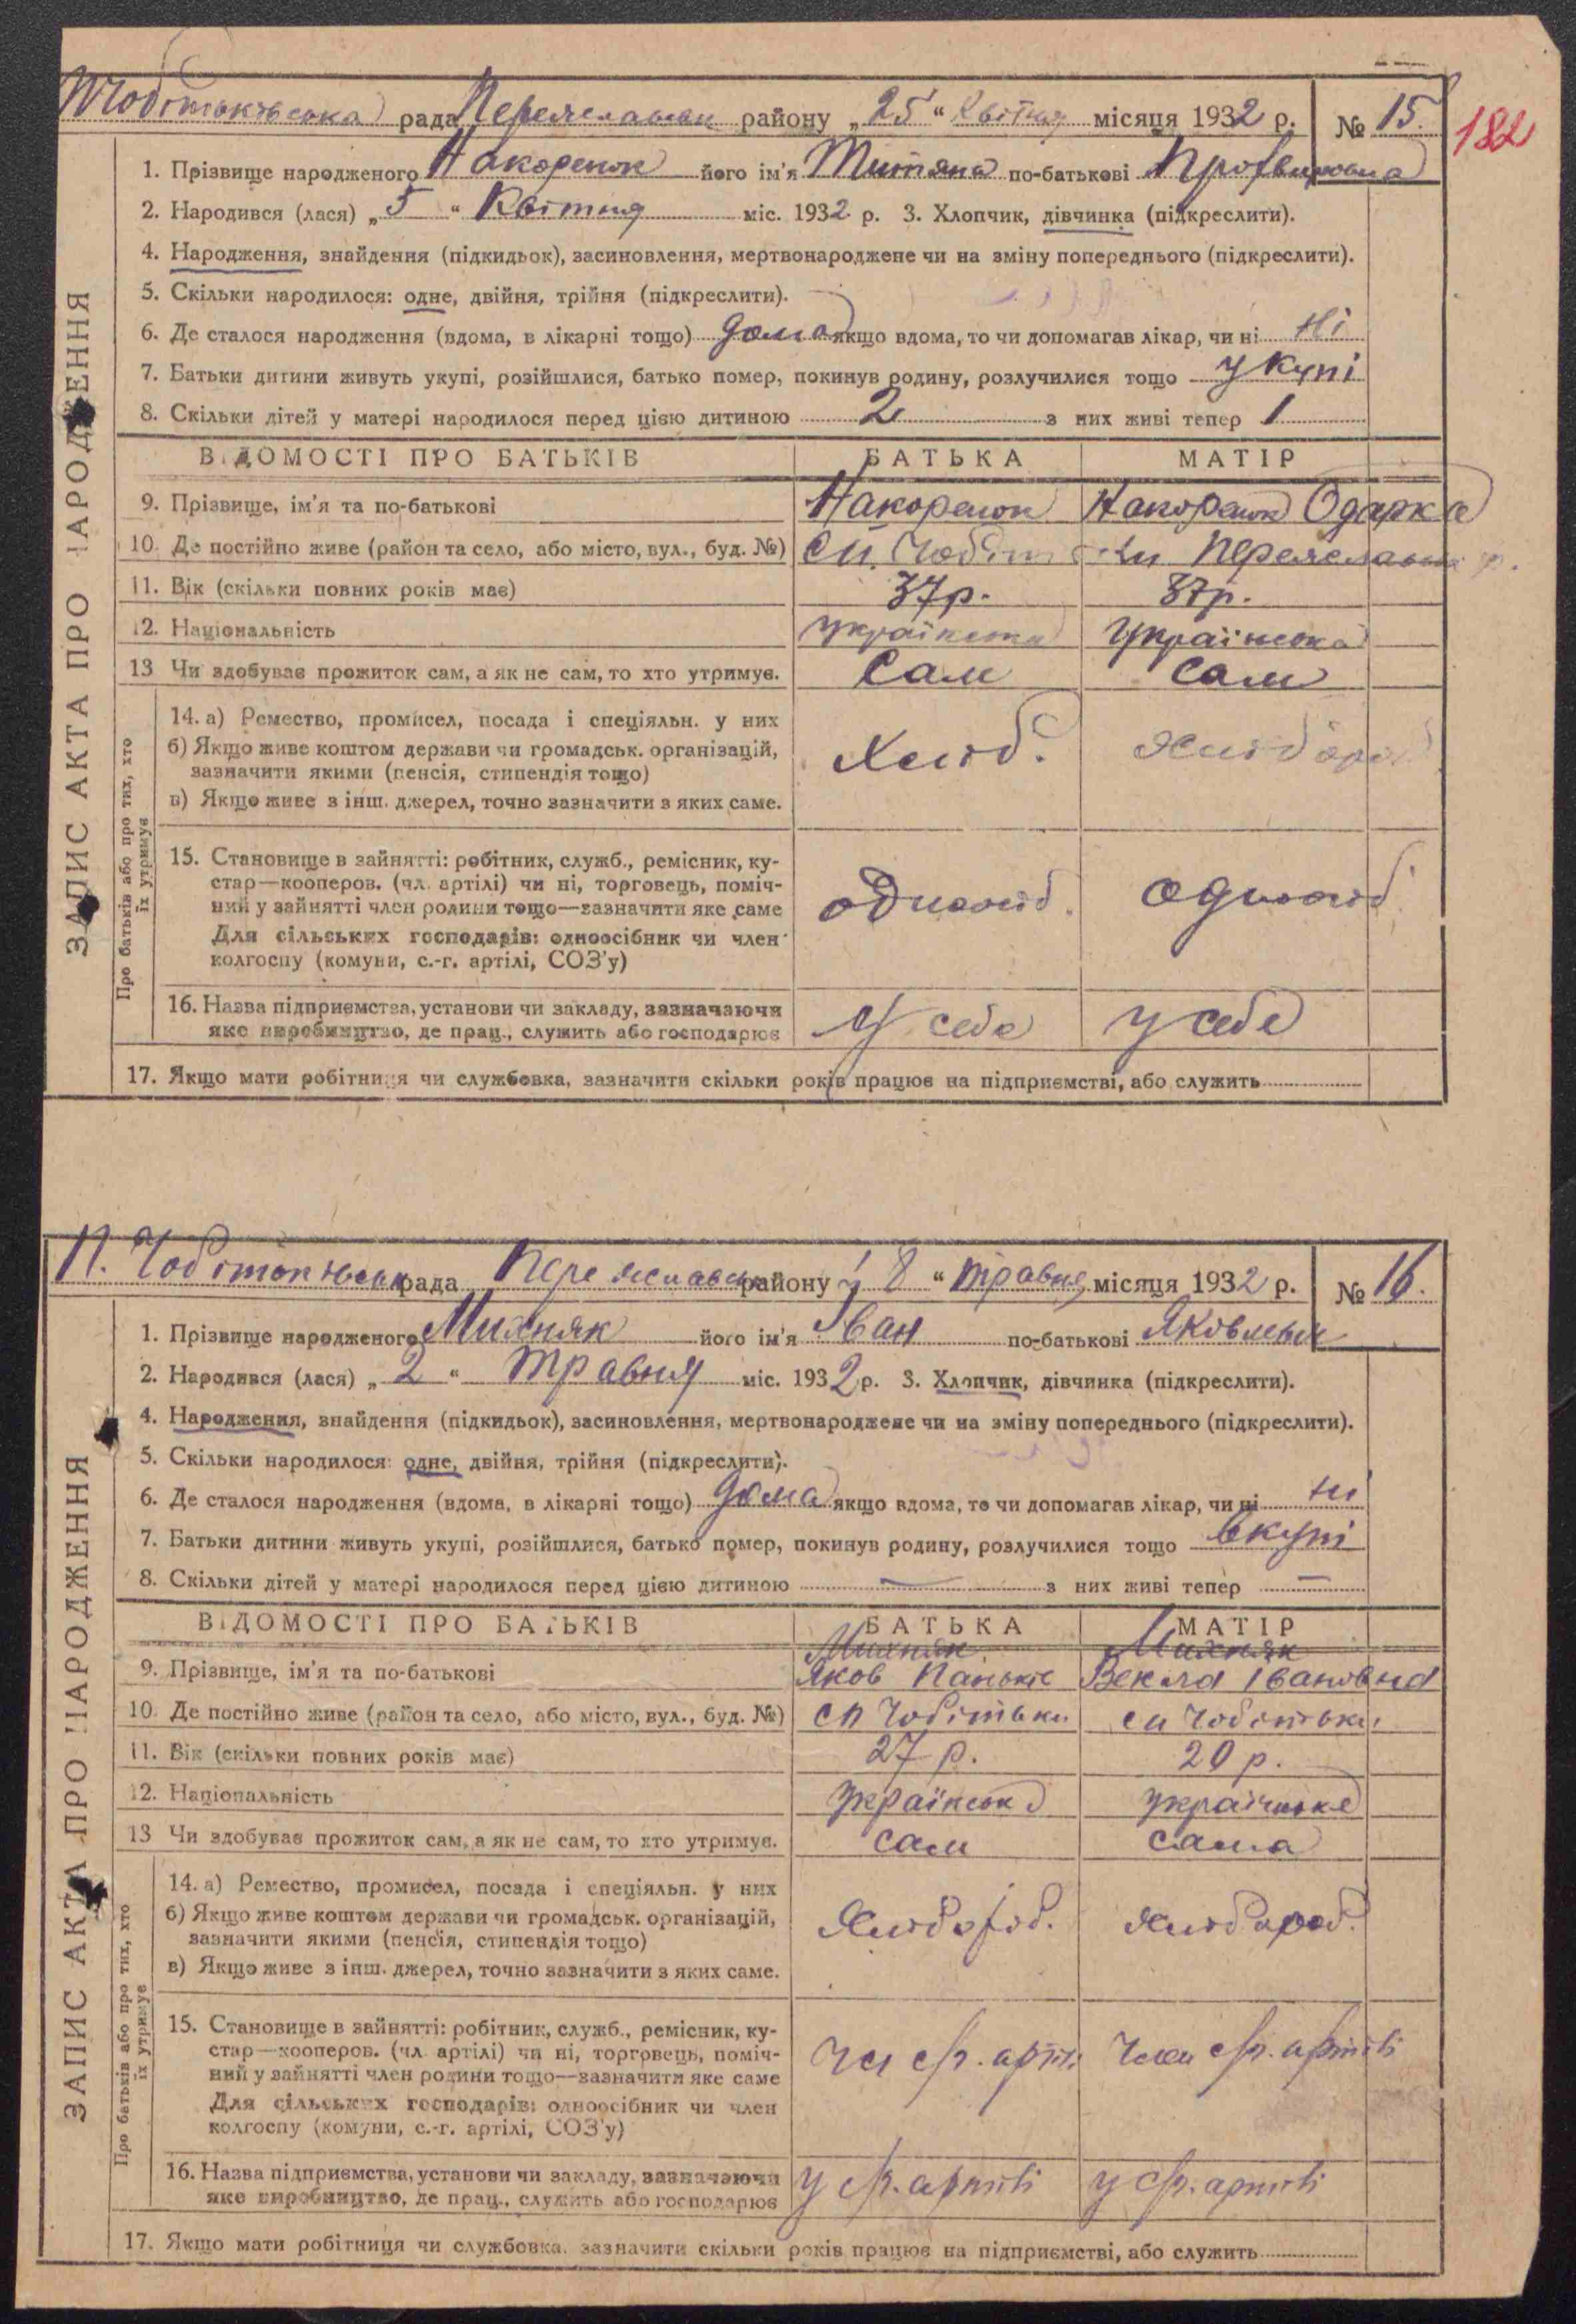 Чобітьківська рада Переяславськ району „25“ Квітня місяця 1932 р. № 15.
182
ЗАПИС АКТА ПРО НАРОДЖЕННЯ
1. Прізвище народженого Накоренок його ім'я Титяна по-батькові
2. Народився (лася) „5“ Квітня міс. 1932 р. 3. Хлопчик, дівчинка (підкреслити).
4. Народження, знайдення (підкидьок), засиновлення, мертвонароджене чи на зміну попереднього (підкреслити).
5. Скільки народилося: одне, двійня, трійня (підкреслити).
6. Де сталося народження (вдома, в лікарні тощо) дома якщо вдома, то чи допомагав лікар, чи ні Ні
7. Батьки дитини живуть укупі, розійшлися, батько помер, покинув родину, розлучилися тощо укупі
8. Скільки дітей у матері народилося перед цією дитиною 2 з них живі тепер 1
ВІДОМОСТІ ПРО БАТЬКІВ БАТЬКА МАТІР
9. Прізвище, ім'я та по-батькові Накоренок Накоренок Одарка
10. Де постійно живе (район та село, або місто, вул., буд. №) Чобітьки Переяславськ р.
11. Вік (скільки повних років має) 37р. 37р.
12. Національність українська Українська
13 Чи здобуває прожиток сам, а як не сам, то хто утримує. Сам Сам
Про батьків або про тих, хто їх утримує
14. а) Ремество, промисел, посада і спеціяльн. у них
б) Якщо живе коштом держави чи громадськ. організацій, Хліб. Хлібороб
зазначити якими (пенсія, стипендія тощо)
в) Якщо живе з інш. джерел, точно зазначити з яких саме.
15. Становище в зайнятті: робітник, служб., ремісник, ку-
стар—кооперов. (чл. артілі) чи ні, торговець, поміч-
ний у зайнятті член родини тощо—зазначити яке саме одноосіб. одноосіб.
Для сільських господарів: одноосібник чи член
колгоспу (комуни, с.-г. артілі, СОЗ'у)
16. Назва підприємства, установи чи закладу, зазначаючи
яке виробництво, де прац., служить або господарює У себе у себе
17. Якщо мати робітниця чи службовка, зазначити скільки років працює на підприємстві, або служить
П. Чобітоківськ рада Переяславськ району „8“ травня місяця 1932 р. № 16.
ЗАПИС АКТА ПРО НАРОДЖЕННЯ
1. Прізвище народженого Михняк його ім'я Іван по-батькові Яковлевич
2. Народився (лася) „2“ травня міс. 1932 р. 3. Хлопчик, дівчинка (підкреслити).
4. Народження, знайдення (підкидьок), засиновлення, мертвонароджене чи на зміну попереднього (підкреслити).
5. Скільки народилося: одне, двійня, трійня (підкреслити).
6. Де сталося народження (вдома, в лікарні тощо) дома якщо вдома, то чи допомагав лікар, чи ні ні
7. Батьки дитини живуть укупі, розійшлися, батько помер, покинув родину, розлучилися тощо вкупі
8. Скільки дітей у матері народилося перед цією дитиною — з них живі тепер —
ВІДОМОСТІ ПРО БАТЬКІВ БАТЬКА МАТІР
Михняк Михняк
9. Прізвище, ім'я та по-батькові Яков Панькіс Векла Івановна
10. Де постійно живе (район та село, або місто, вул., буд. №) сп Чобітьки сп Чобітьки
11. Вік (скільки повних років має) 27 р. 20 р.
12. Національність українська українське
13 Чи здобуває прожиток сам, а як не сам, то хто утримує. сам сама
Про батьків або про тих, хто їх утримує
14. а) Ремество, промисел, посада і спеціяльн. у них
б) Якщо живе коштом держави чи громадськ. організацій, Хлібороб. Хлібороб.
зазначити якими (пенсія, стипендія тощо)
в) Якщо живе з інш. джерел, точно зазначити з яких саме.
15. Становище в зайнятті: робітник, служб., ремісник, ку-
стар—кооперов. (чл. артілі) чи ні, торговець, поміч- чл с/г. артіл член с/г. артілі
ний у зайнятті член родини тощо—зазначити яке саме
Для сільських господарів: одноосібник чи член
колгоспу (комуни, с.-г. артілі, СОЗ'у)
16. Назва підприємства, установи чи закладу, зазначаючи
яке виробництво, де прац., служить або господарює у с/г. артілі у с/г. артілі
17. Якщо мати робітниця чи службовка, зазначити скільки років працює на підприємстві, або служить